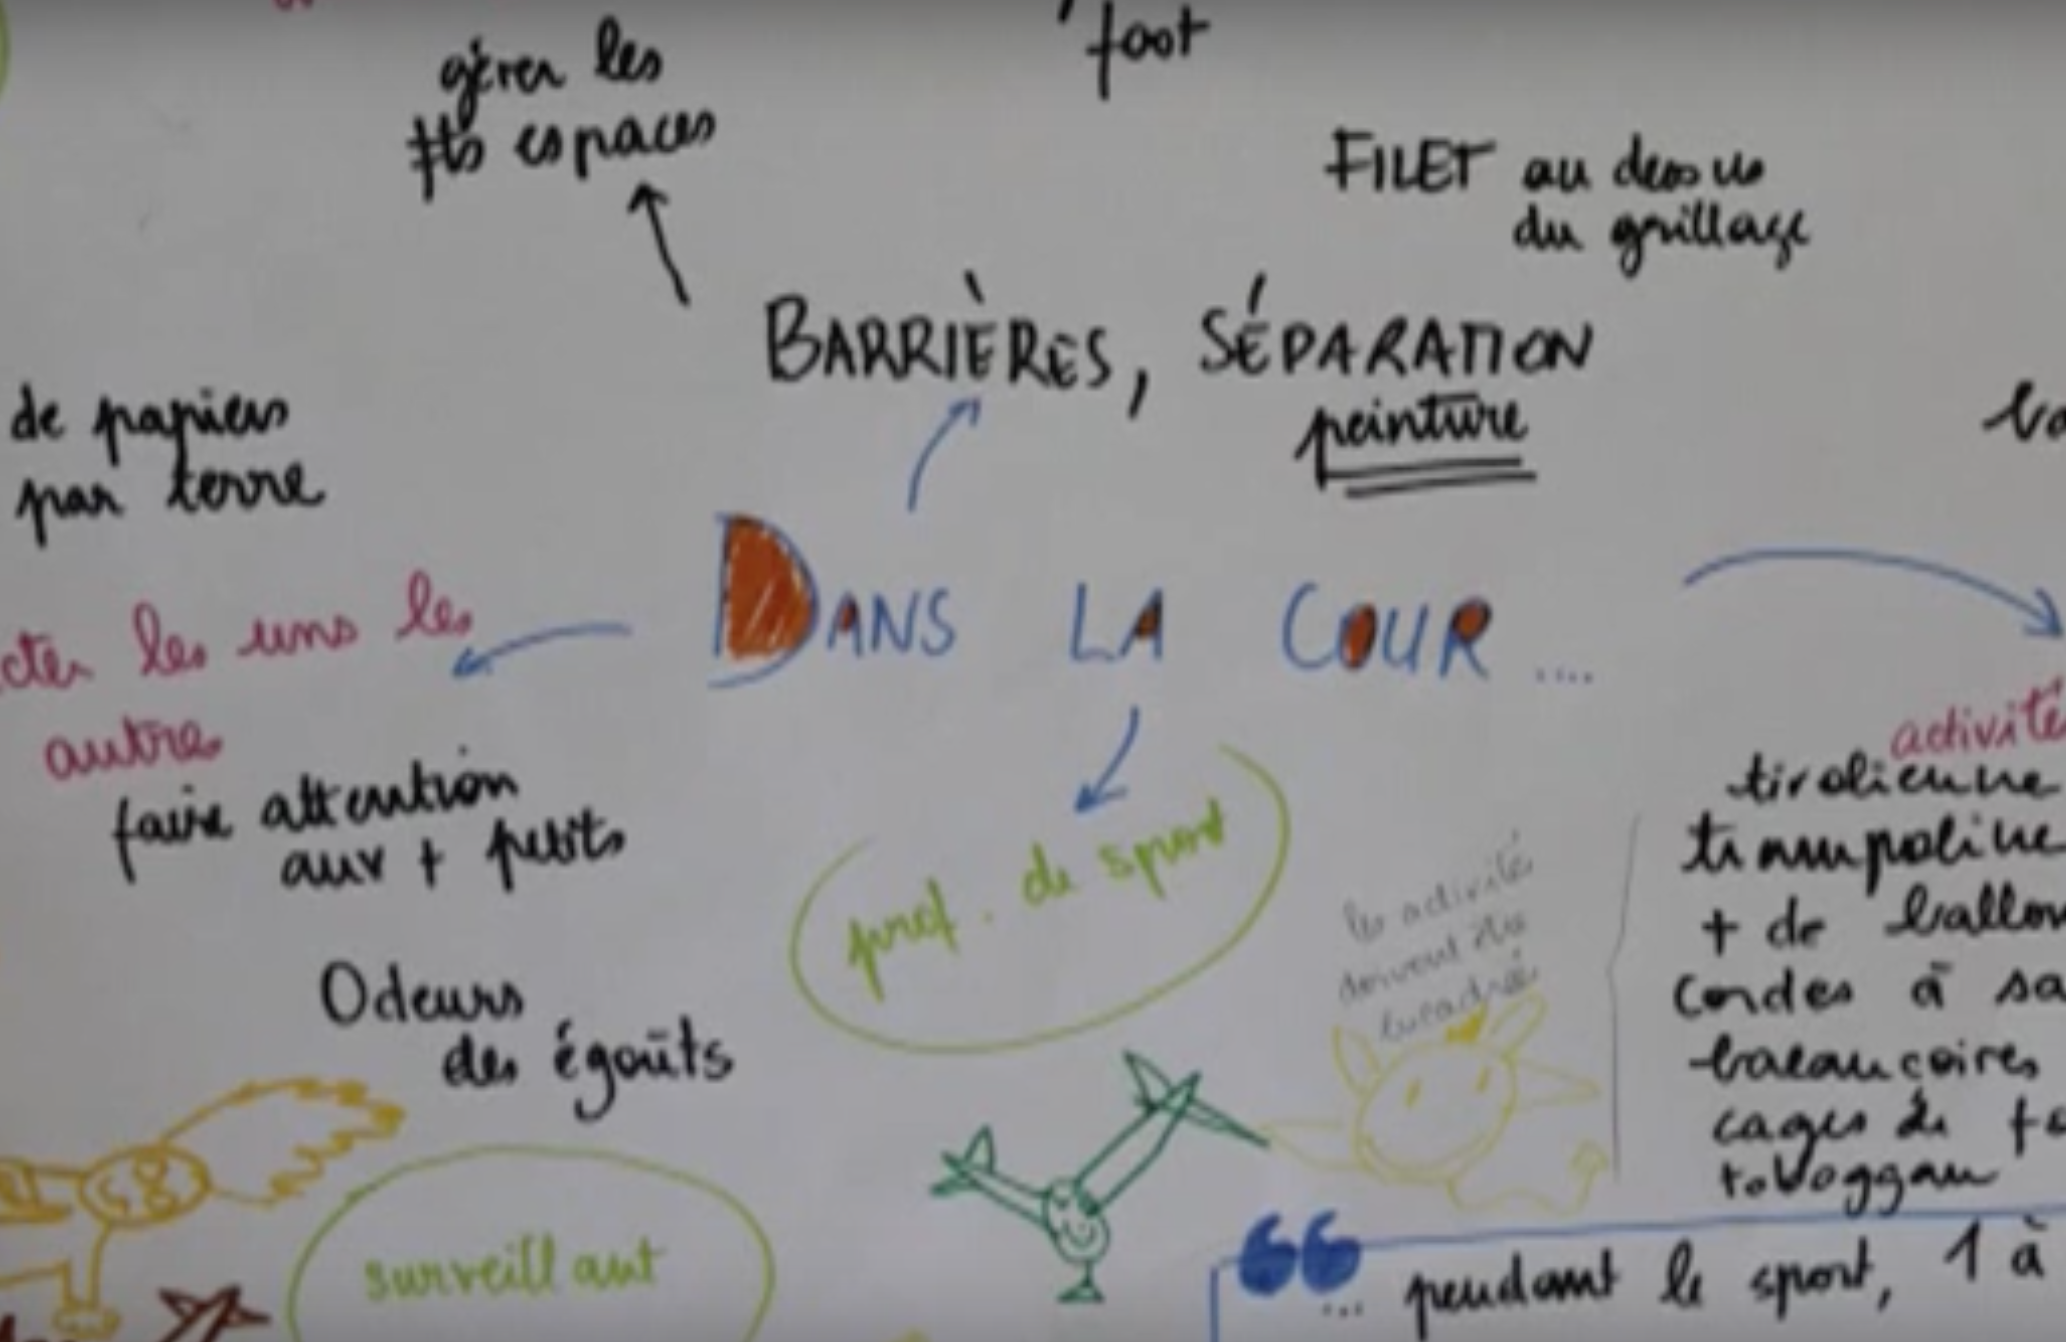 foot
gérer les
≠ts espaces
FILET au dessus
du grillage
BARRIÈRES, SÉPARATION
peinture
de papiers
par terre
DANS LA COUR ....
cter les uns les
autres
faire attention
aux + petits
prof. de sport
les activités
doivent être
encadrées
Odeurs
des égoûts
surveillant
activité
tirolienne
trampoline
+ de ballon
Cordes à sa
balançoires
cages de
toboggan
“ ... pendant le sport, 1 à